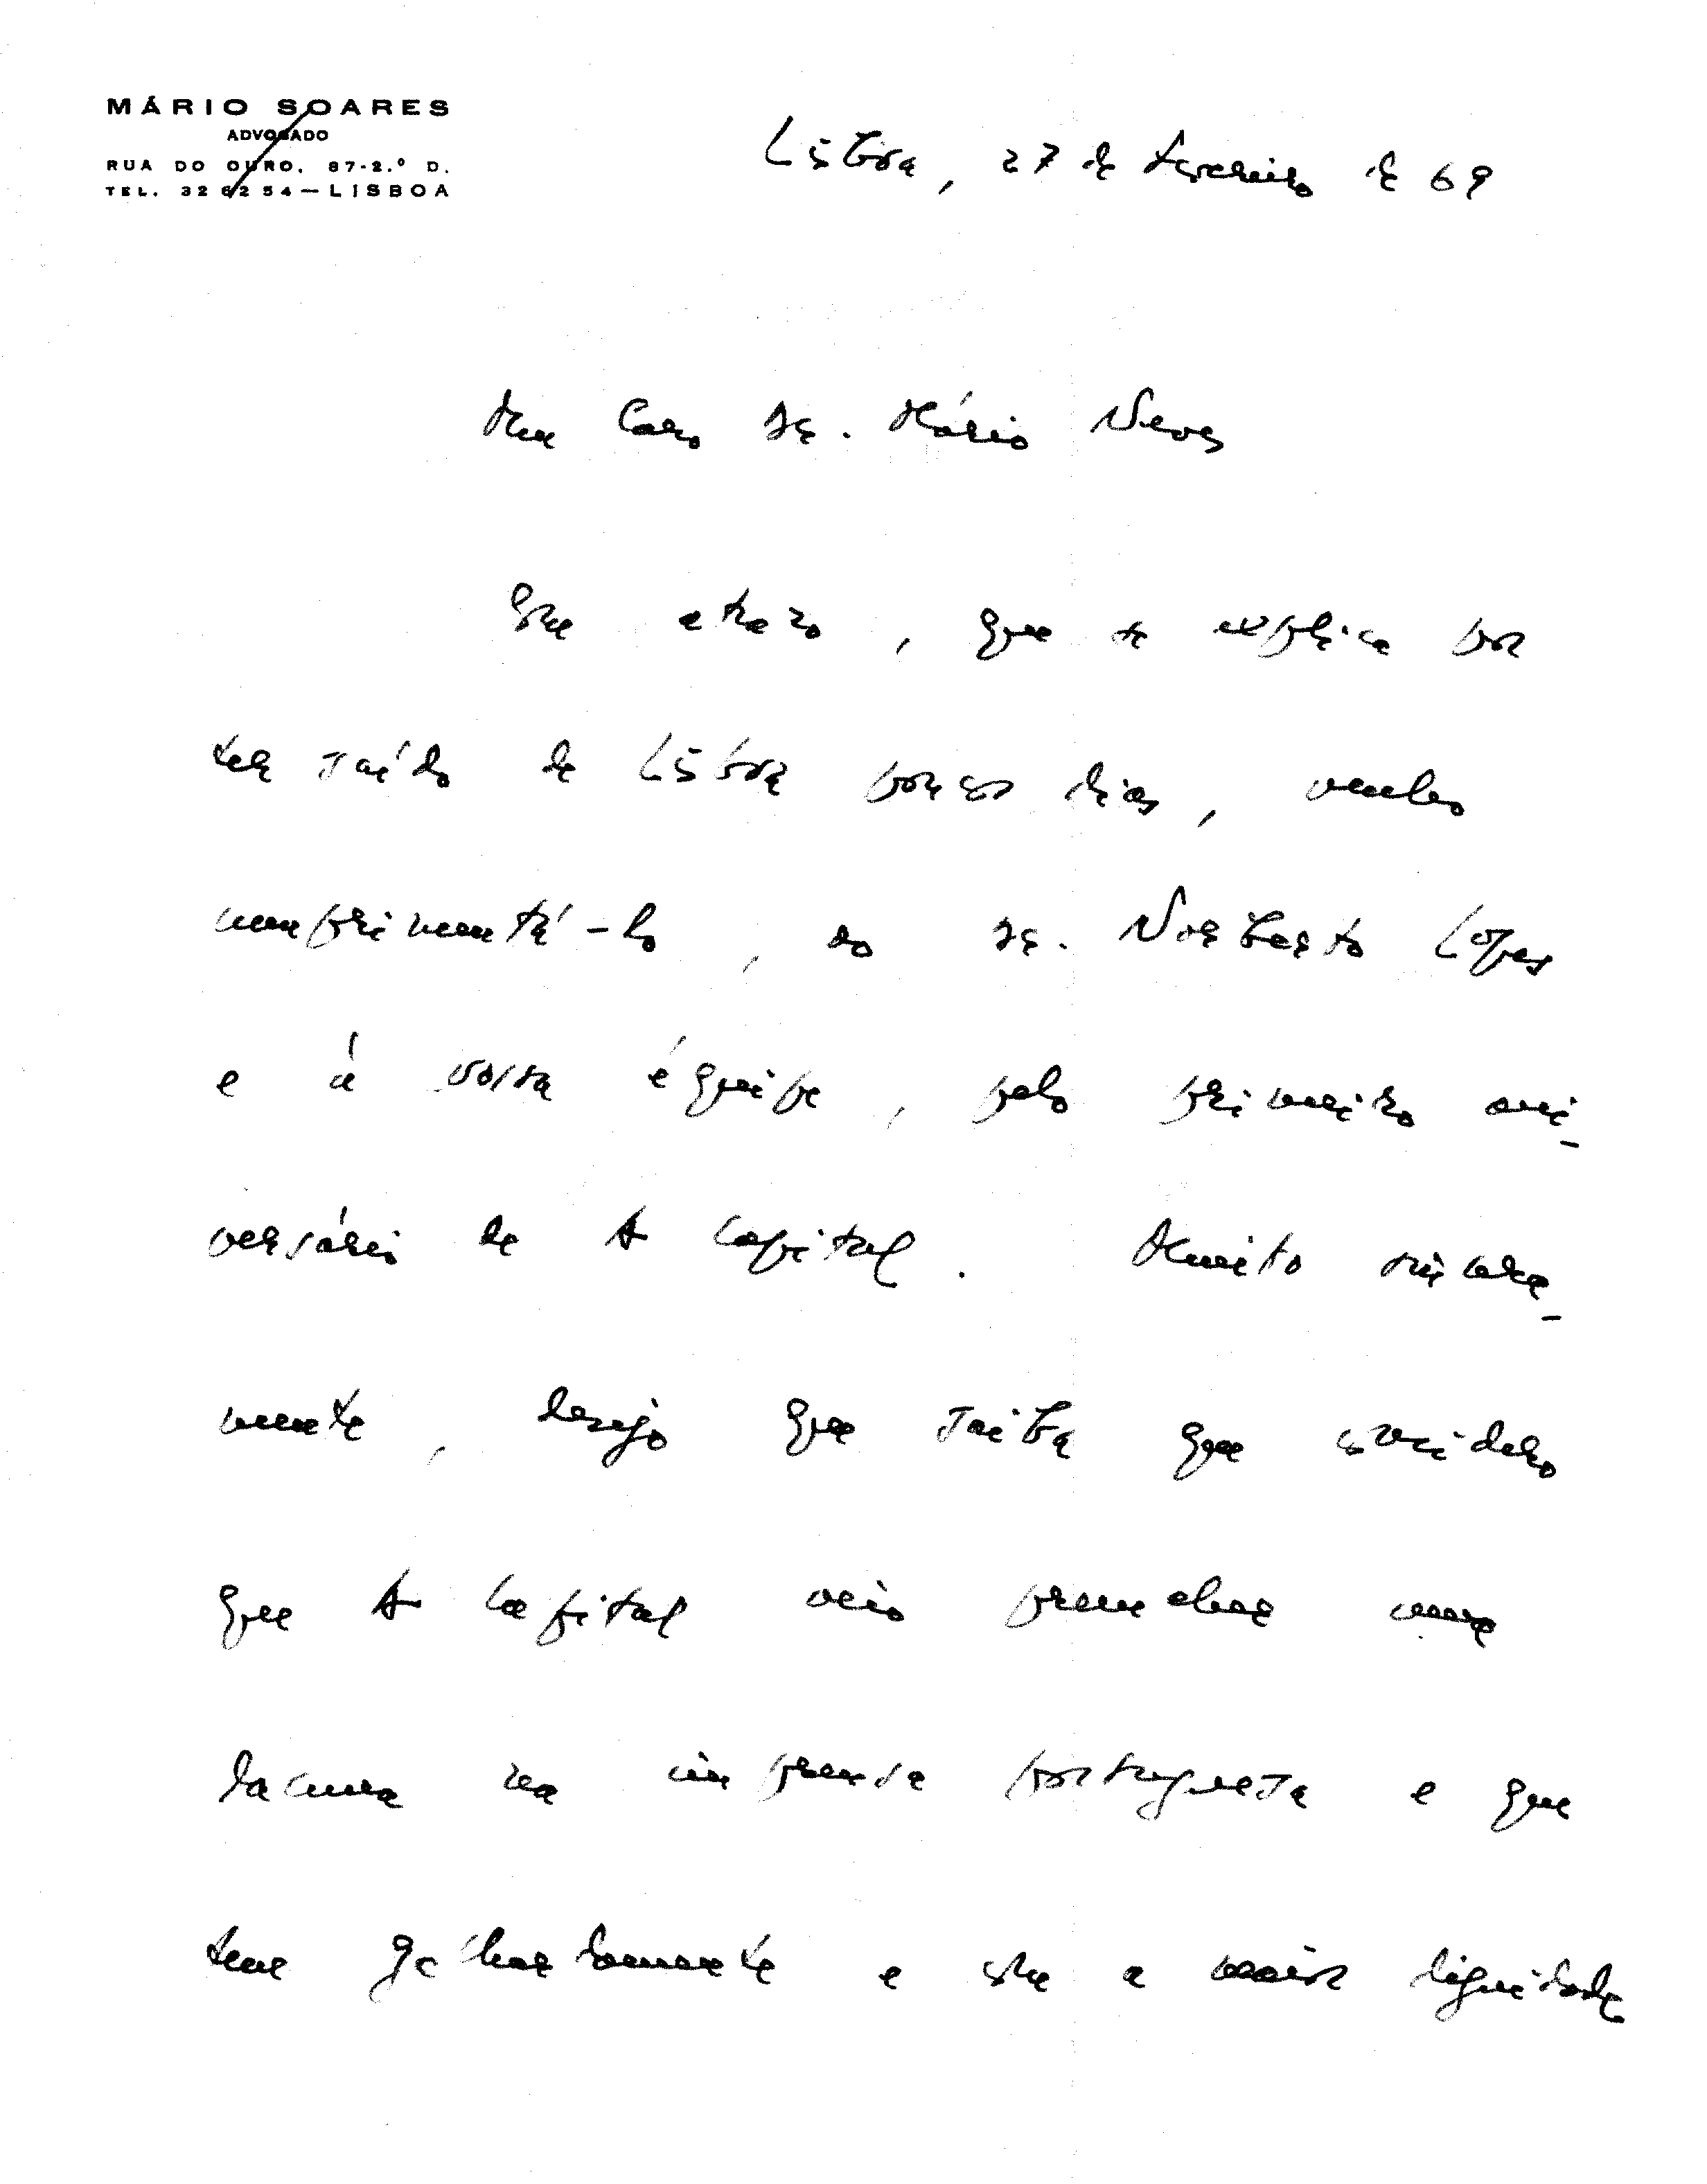 MÁRIO SOARES
ADVOGADO
RUA DO OURO, 87-2.º D.
TEL. 32 62 54 — LISBOA
Lisboa, 27 de Fevereiro de 69
Meu Caro Dr. Mário Neves
Com atrazo, que se explica por
ter saído de Lisboa poucos dias, venho
cumprimentá-lo, ao Dr. Norberto Lopes
e à vossa équipe, pelo primeiro ani-
versário de A Capital. Muito sincera-
mente, desejo que saiba que considero
que A Capital veio preencher uma
lacuna na imprensa portuguesa e que
tem galhardamente e com a maior dignidade